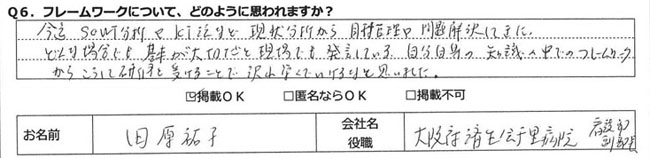 Q6. フレームワークについて、どのように思われますか?
今迄 SOWT分析や KJ法など 現状分析から 目標管理や 問題解決してきた。
どんな場合でも 基本が大切だと 現場でも 発言している 自分自身の 知識の中でのフレームワーク
からこうして研修を受けることで 沢山学んでいけると思いました。
☑掲載OK □匿名ならOK □掲載不可
お名前 田原祐子 会社名 役職 大阪府済生会千里病院 看護部 副部長